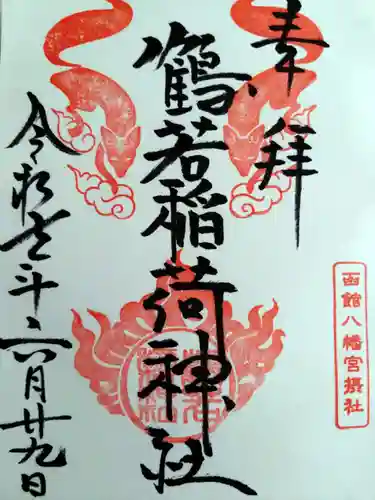 奉拝
函館八幡宮摂社
鶴若稲荷神社
令和七年六月廿九日